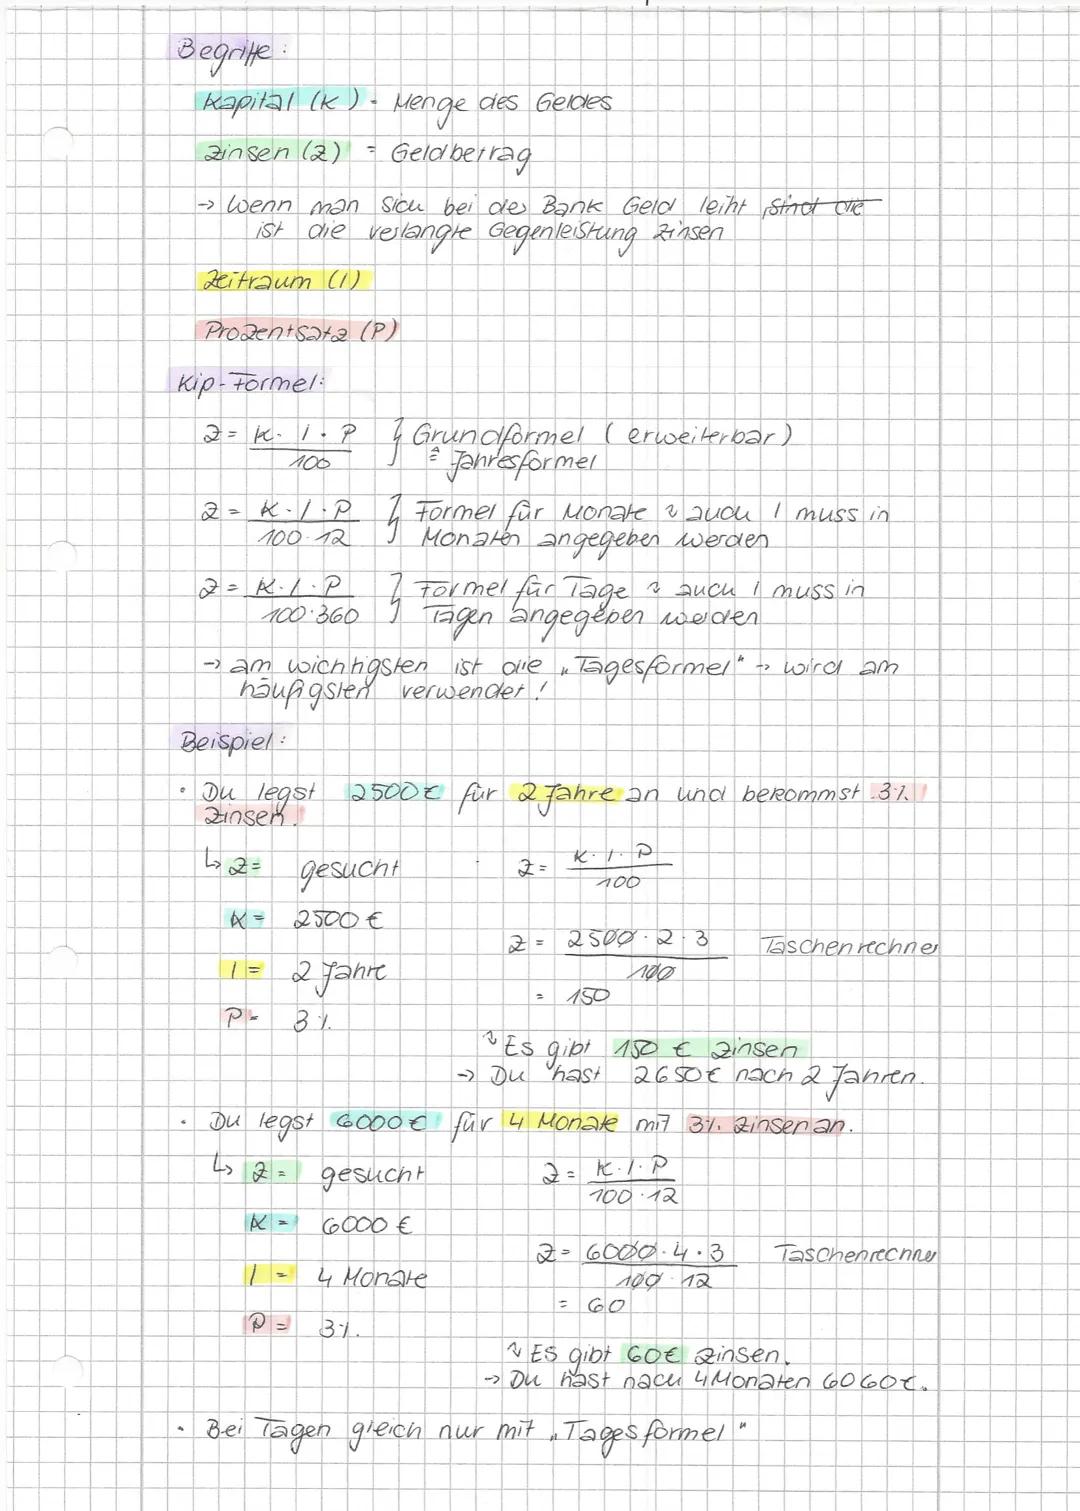 Begriffe:
Kapital (K) = Menge des Geldes
Zinsen (Z) = Geldbetrag
→ Wenn man sich bei der Bank Geld leiht, sind die
ist die verlangte Gegenleistung Zinsen
Zeitraum (I)
Prozentsatz (P)
Kip-Formel:
Z = K · I · P / 100 } Grundformel (erweiterbar)
≙ Jahresformel
Z = K · I · P / 100 · 12 } Formel für Monate ↝ auch I muss in
Monaten angegeben werden
Z = K · I · P / 100 · 360 } Formel für Tage ↝ auch I muss in
Tagen angegeben werden
→ am wichtigsten ist die „Tagesformel" → wird am
häufigsten verwendet!
Beispiel:
• Du legst 2500€ für 2 Jahre an und bekommst 3%
Zinsen.
↳ Z = gesucht
K = 2500 €
I = 2 Jahre
P = 3%
Z = K · I · P / 100
Z = 2500 · 2 · 3 / 100 Taschenrechner
= 150
↝ Es gibt 150 € Zinsen
→ Du hast 2650€ nach 2 Jahren.
• Du legst 6000€ für 4 Monate mit 3% Zinsen an.
↳ Z = gesucht
K = 6000 €
I = 4 Monate
P = 3%.
Z = K · I · P / 100 · 12
Z = 6000 · 4 · 3 / 100 · 12 Taschenrechner
= 60
↝ Es gibt 60€ Zinsen.
→ Du hast nach 4 Monaten 6060€.
• Bei Tagen gleich nur mit „Tagesformel"